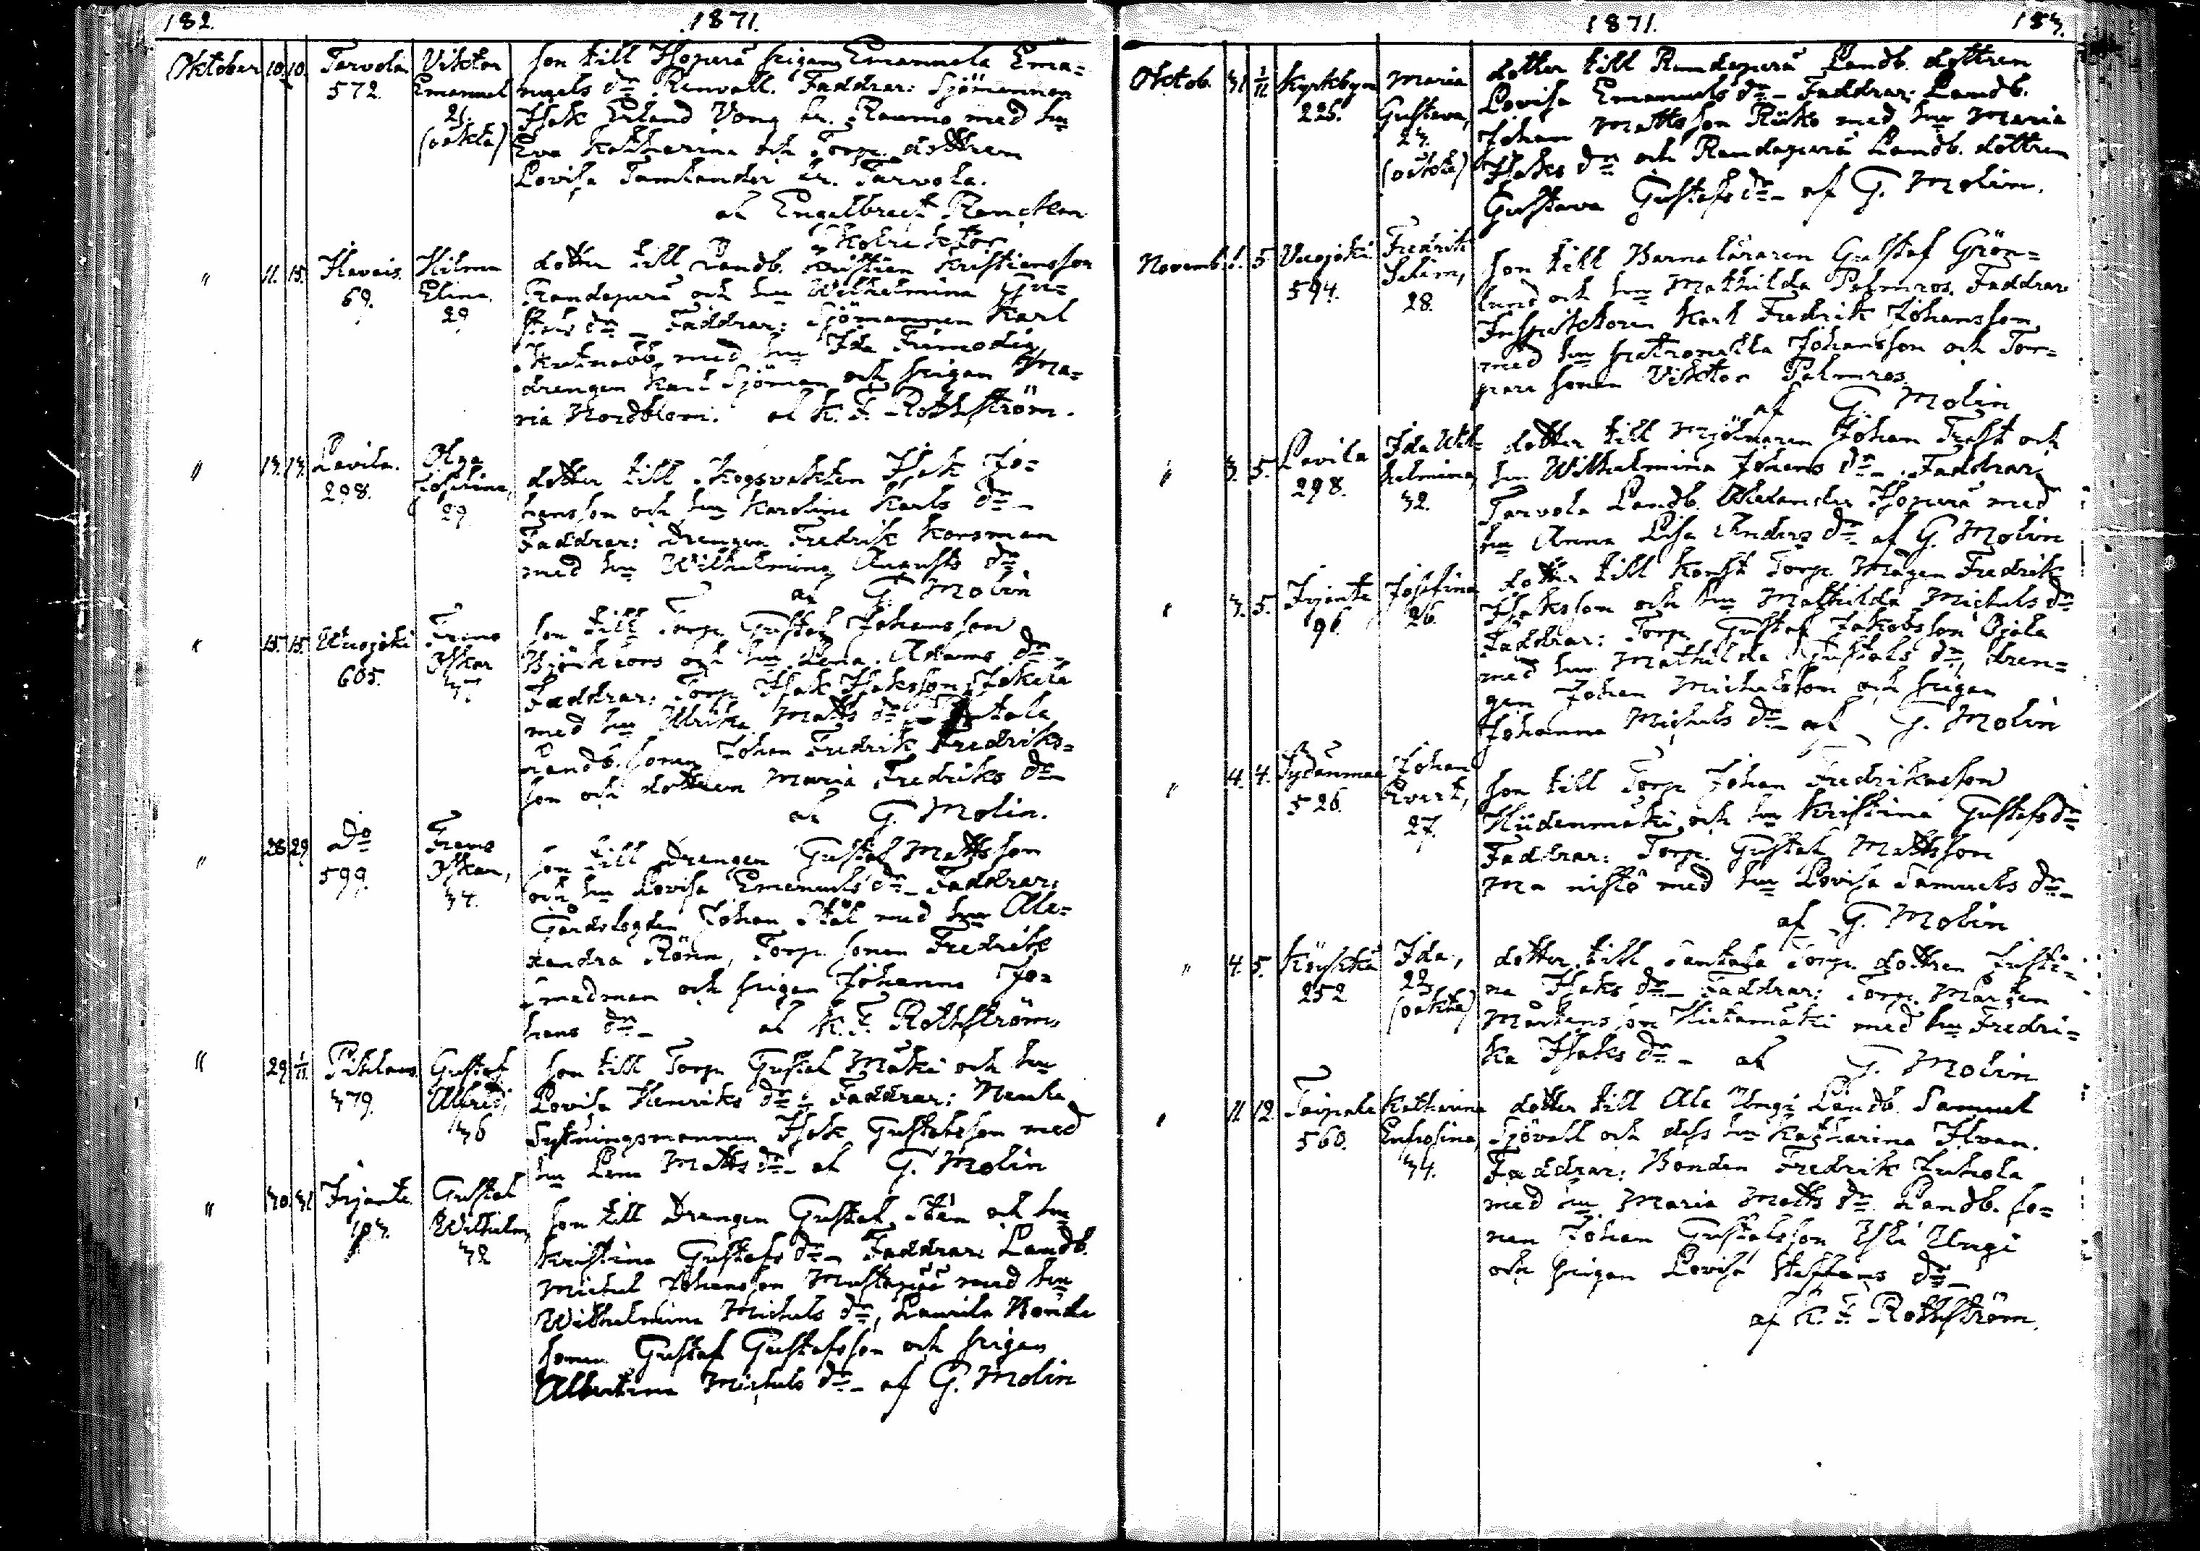 182. 1871.
Oktober 10. 10. Tarvola 572. Viktor Emanuel 21. (oäkta)
son till Isoperä pigan Emanuela Ema=
nuels dr Renvall. Faddrar: Sjömannen
Isak Erland Vong fr. Raumo med hu
Eva Katharina och Torp. dottren
Lovisa Tamlander fr. Tarvola.
af Engelbrect Rancken
" 11. 15. 69. Hilma Elina 29
dotter till Landb. Kristian Kristiansson
Randaperä och hu Wilhelmina Gu=
stafs dr _ Faddrar: Sjömannen Karl
med hu Ida Frimodig,
drengen Karl Sjöman och pigan Ma=
ria Nordblom. af K. F. Rothström.
" 13. 13. Lavila. 298. Olga Josefina, 29
dotter till Skogsvakten Isak Jo=
hansson och hu Karolina Karls dr _
Faddrar: Drengen Fredrik Korsman
med hu Wilhelmina Augusts dr
af G. Molin
" 15. 15. Wuojoki 605. Frans Oskar 37.
son till Torp. Gustaf Johansson
och hu Lena Adams dr _
Faddrar: Torp. Isak Isaksson Jokela
med hu Ulrika Matts dr
Landb. sonen Johan Fredrik Fredriks=
son och dottren Maria Fredriks dr
af G. Molin.
" 28 29 do 599. Frans Oskar, 34.
son till Drengen Gustaf Mattsson
och hu Lovisa Emanuels dr _ Faddrar:
Gårdsfogden Johan Stål med hu Ale=
xandra Rönn, Torp. sonen Fredrik
och pigan Johanna Jo=
hans dr _ af K. F. Rothström.
" 29 1/11 379. Gustaf Alfred, 36
son till Torp. Gustaf Mäki och hu
Lovisa Henriks dr _ Faddrar:
Sytningsmannen Isak Gustafsson med
hu Lena Matts dr _ af G. Molin
" 30. 31 Irjante 103. Gustaf Wilhelm, 32
son till Drengen Gustaf Stén och hu
Kristina Gustafs dr _ Faddrar: Landb.
Michel Johansson Mustapää med hu
Wilhelmina Michels dr, Laurila Bonde
sonen Gustaf Gustafsson och pigan
Albertina Michels dr _ af G. Molin
1871. 183.
Oktob. 31 1/11 Kyrkbyn 225. Maria Gustava, 23. (oäkta)
dotter till Randaperä Landb. dottren
Lovisa Emanuels dr _ Faddrar: Landb.
Johan Mattsson Riiko med hu Maria
Isaks dr och Randaperä Landb. dottren
Gustava Gustafs dr _ af G. Molin.
Novemb. 1. 5 Wuojoki 594. Fredrik Selim, 28.
son till Barnaläraren Gustaf Grön=
lund och hu Mathilda Palmros. Faddrar
Inspektoren Karl Fredrik Johansson
med hu Petronella Johansson och Tor=
pare sonen Viktor Palmros
af G. Molin
" 3. 5. Lavila 298. Ida Wil= helmina, 32.
dotter till Mjölnaren Johan Trast och
hu Wilhelmina Johans dr _ Faddrar:
Tarvola Landb. Alexander Isoperä med
hu Anna Lisa Anders dr _ af G. Molin
" 3. 5. Irjante 96. Josefina 26.
dotter till Torp. Mågen Fredrik
Isaksson och hu Mathilda Michels dr
Faddrar: Torp. Gustaf Jakobsson Ojala
med hu Mathilda Gustafs dr, dren=
gen Johan Michelsson och pigan
Johanna Michels dr _ af G. Molin
" 4. 4. Sydänmaa 526. Johan Evert, 27.
son till Torp. Johan Fredriksson
Hiidenmäki och hu Kristina Gustafs dr
Faddrar: Torp. Gustaf Mattsson
med hu Lovisa Samuels dr _
af G. Molin
" 4. 5. Köykkä 252 Ida, 22, (oäkta)
dotter till Santala Torp. dottren Justi=
na Isaks dr _ Faddrar: Torp. Mårten
Mårtensson Hietamäki med hu Fredri=
ka Isaks dr _ af G. Molin
" 11. 12. Taipale 560. Katharina Eufrosina, 34.
dotter till Ala Ungi Landb. Samuel
Sjövall och dess hu Katharina Ilvan.
Faddrar: Bonden Fredrik Juhola
med hu Maria Matts dr Landb. so=
nen Johan Gustafsson Yli Ungi
och pigan Lovisa Staffans dr _
af K. F. Rothström.